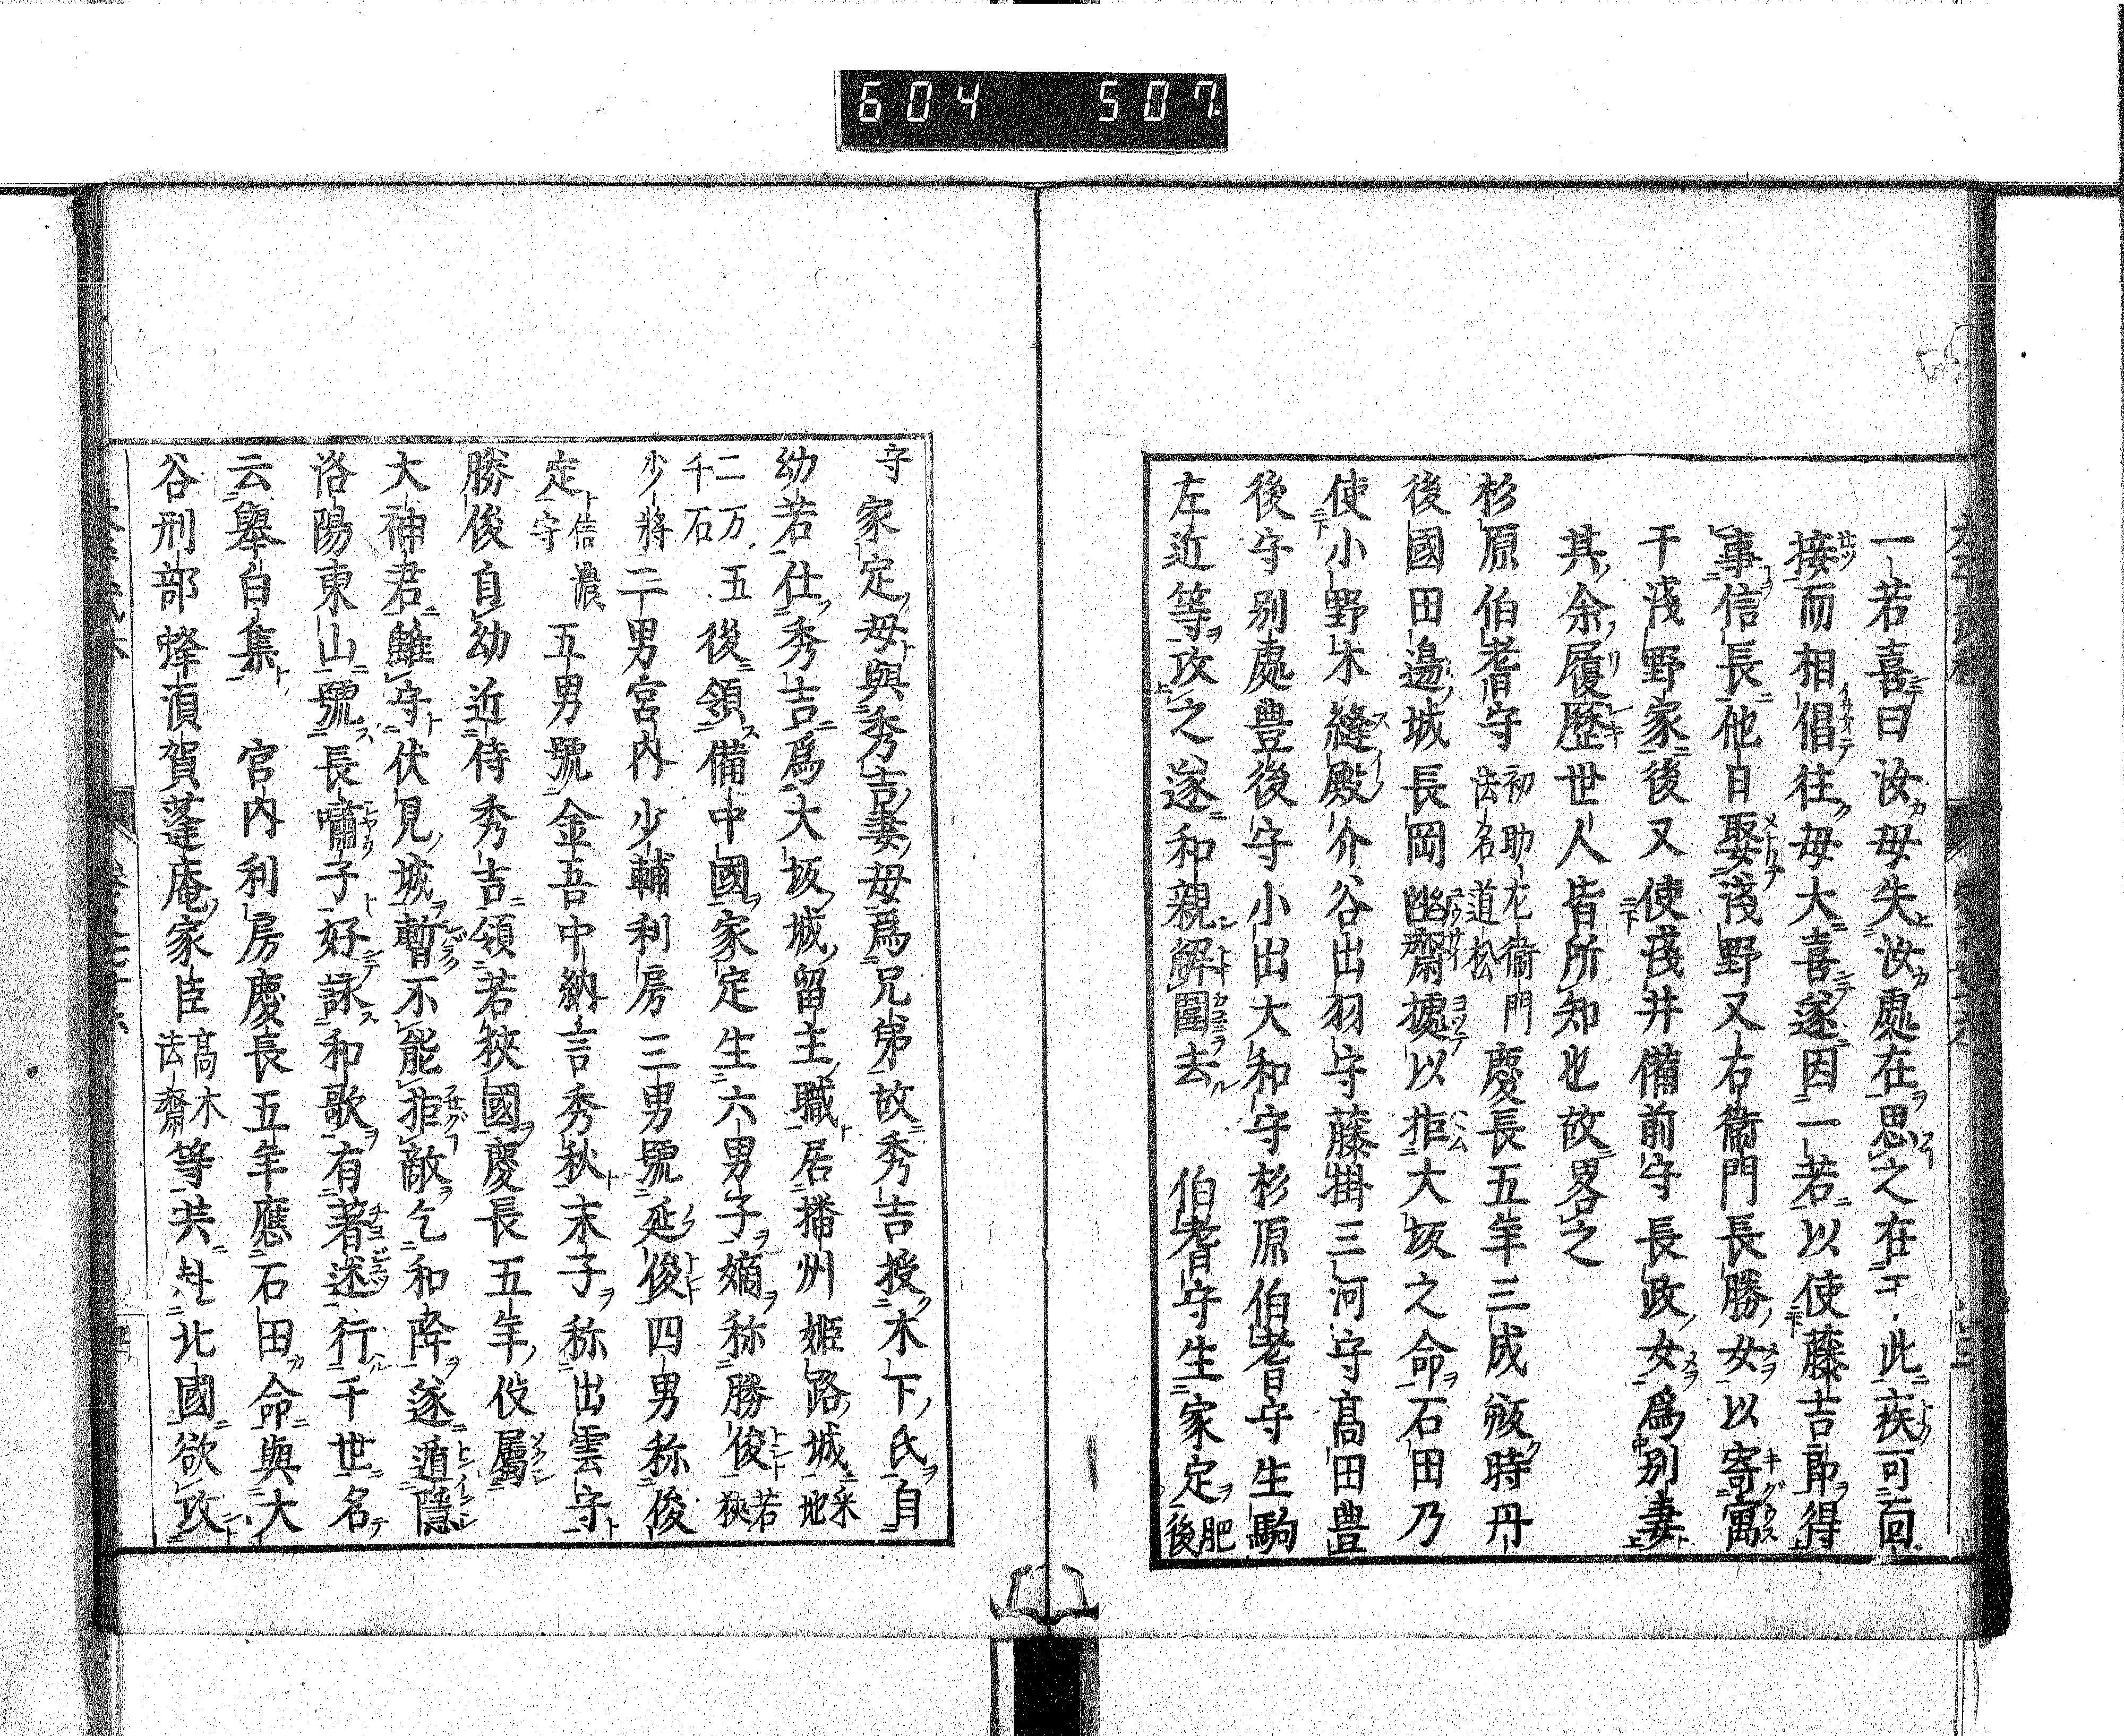 604 507
一若喜曰汝母失汝處在思之在于此疾可面
接而相倡往母大喜遂因一若以使藤吉郎得
事信長他日娶淺野又右衞門長勝女以寄寓
于淺野家後又使淺井備前守長政女爲別妻
其余履歷世人皆所知也故畧之
杉原伯耆守初助左衞門法名道松慶長五年三成叛時丹
後國田邊城長岡幽齋據以拒大坂之命石田乃
使小野木縫殿介谷出羽守藤掛三河守髙田豊
後守別處豊後守小出大和守杉原伯耆守生駒
左近等攻之遂和親解圍去 伯耆守生家定肥後
守家定母與秀吉妻母爲兄弟故秀吉授木下氏自
幼若仕秀吉爲大坂城留主職居播州姫路城采地
二万五千石後領備中國家定生六男子嫡称勝俊若狹
少將二男宮内少輔利房三男號延俊四男称俊
定信濃守五男號金吾中納言秀秋末子称出雲守
勝俊自幼近侍秀吉領若狹國慶長五年伇屬
大神君雖守伏見城暫不能拒敵乞和降遂遁隱
洛陽東山號長嘯子好詠和歌有著述行千世名
云舉白集 宮内利房慶長五年應石田命與大
谷刑部蜂湏賀蓬庵家臣髙木法齋等共赴北國欲攻